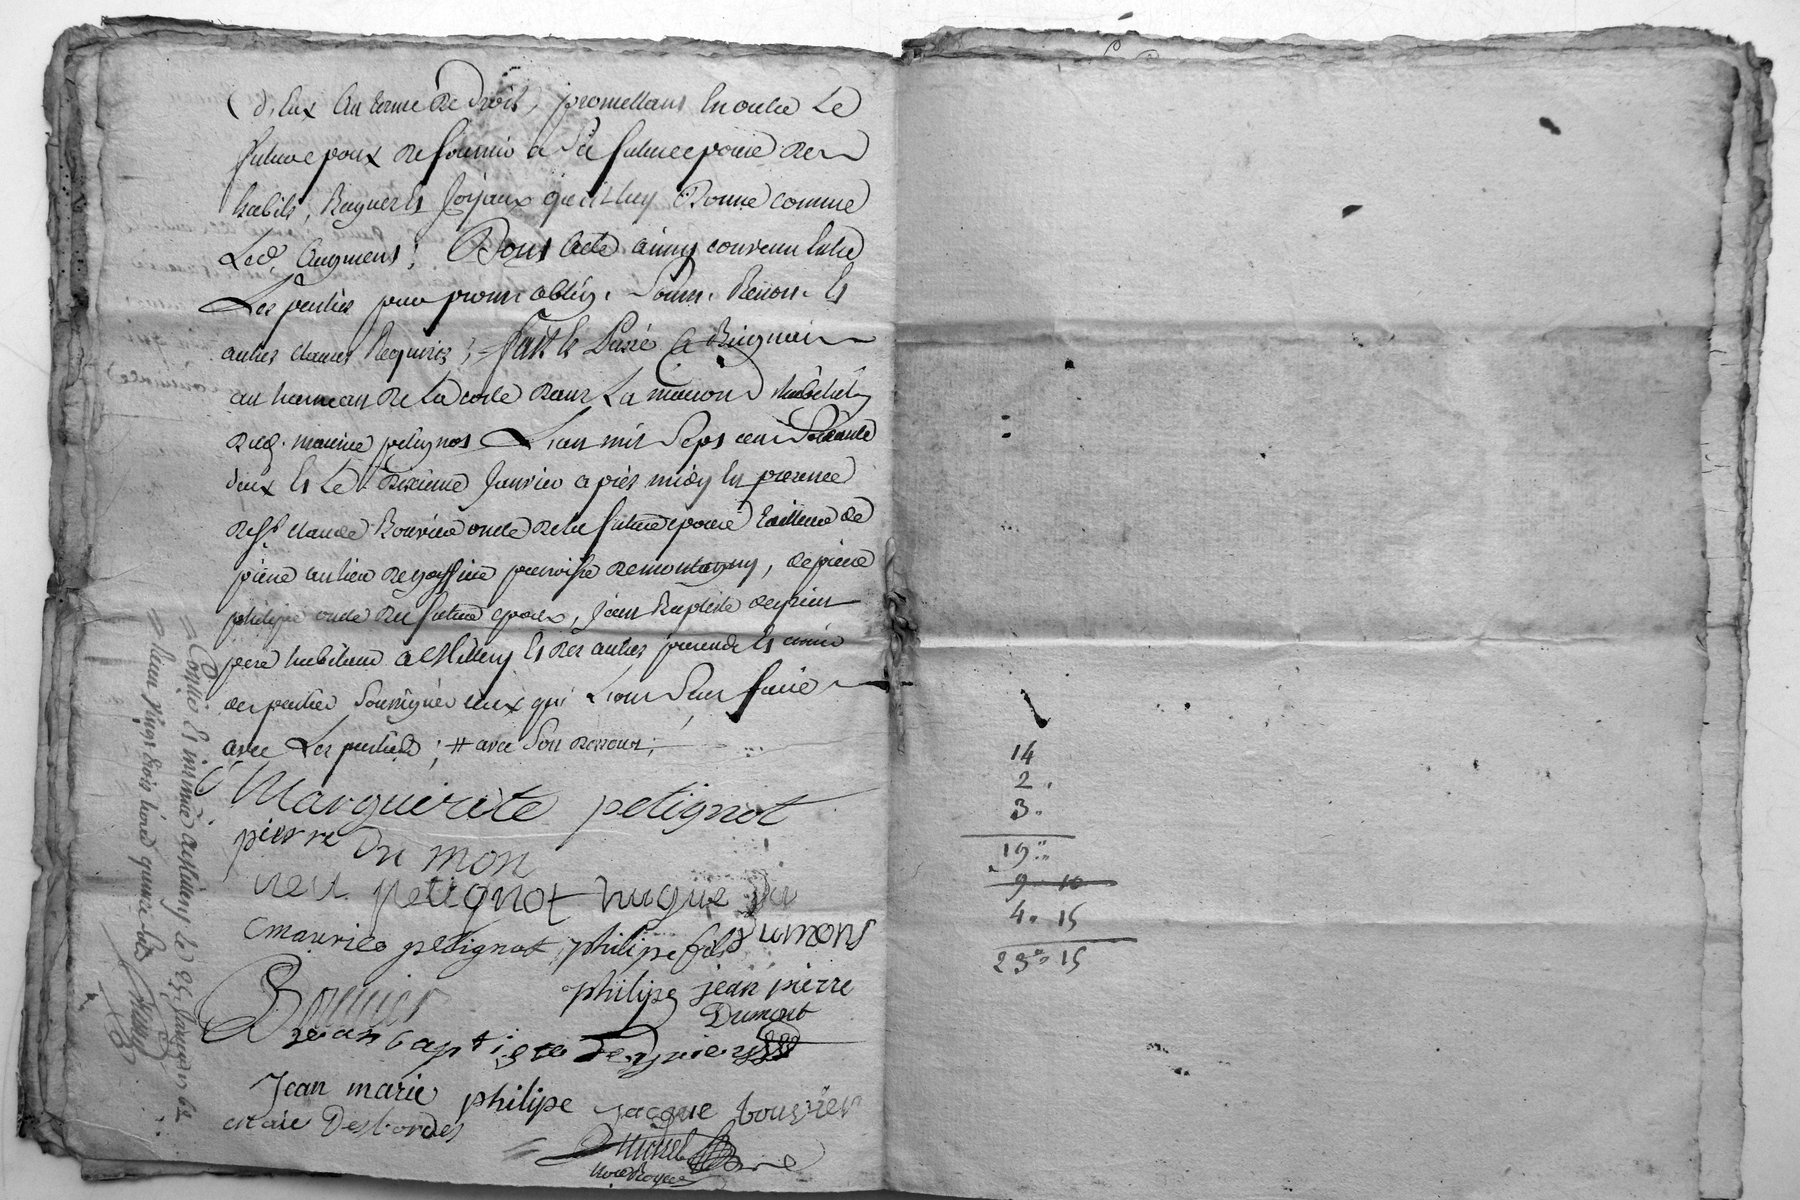 d'Eux au terme de Droit, promettans En outre Le
futur epoux de fournir a Sa future epouse des
habits, Bagues Et Joyaux qu'il luy Donne comme
Led. augment; Dont acte ainsy convenu Entre
Les parties pour prom: oblig. Soum. Renon. Et
autres clauses Requises; fait Et Passé a Brignais
au hameau de La cote dans La maison d'habitaon
dud. maurice petignot L'an mil Sept cent Soixante
deux Et Le dixieme Janvier apres midy En presence
de Sr. claude Bouvier oncle de la future epouse tailleur de
pierre au lieu de paroisse de montagny, de pierre
philipe oncle du futur epoux, Jean Baptiste deyrieu
pere habitant a Millery Et des autres parents Et amis
des parties Soussignés eux qui L'ont Sceu faire
avec Les parties; # avec Son
Marguerite petignot
pierre Du mon
petignot hugue Du
maurice petignot philipe fils Dumons
Bouvier philipe jean pierre
Dumont
jean baptiste Deyrieu
Jean marie philipe jacque bouvier
Desbordes
Controllé Et insinué a le 23 Janvier 62
Vingt trois livres quinze sols
14
2.
3.
19"
9 10
4. 15
23" 15